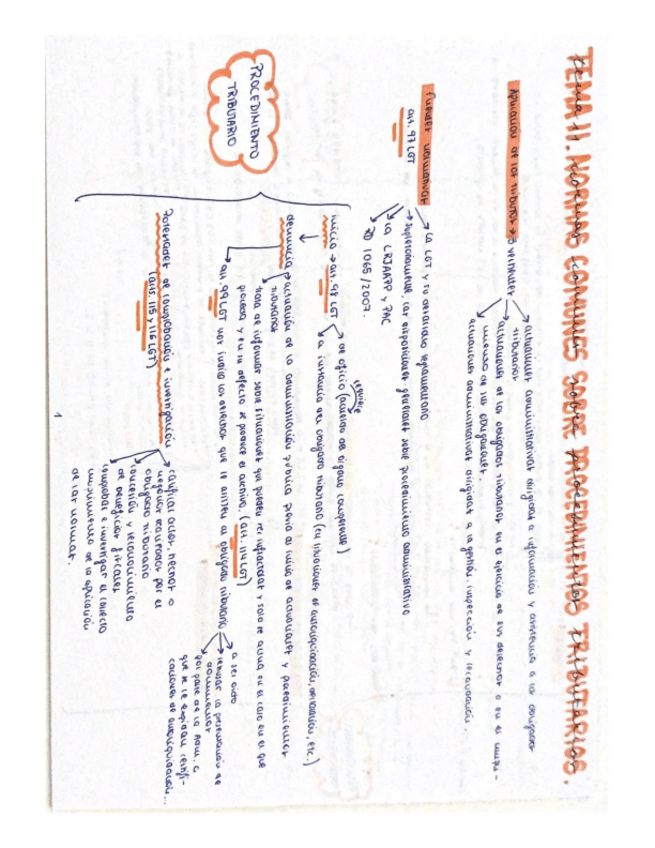 TEMA 11. NORMAS COMUNES SOBRE PROCEDIMIENTOS TRIBUTARIOS.
Aplicación de los tributos → 3 vertientes
actuaciones administrativas dirigidas a información y asistencia a los obligados
tributarios
actuaciones de los obligados tributarios en el ejercicio de sus derechos o en el cumpli-
miento de sus obligaciones.
actuaciones administrativas dirigidas a la gestión, inspección y recaudación.
Fuentes normativas
art. 97 LGT
la LGT y su desarrollo reglamentario
supletoriamente, las disposiciones generales sobre procedimiento administrativo
la LRJAAPP y PAC
RD 1065/2007.
PROCEDIMIENTO
TRIBUTARIO
inicio → art. 98 LGT
requiere
de oficio (acuerdo de órgano competente)
a instancia del obligado tributario (en situaciones de autoliquidación, declaración, etc.)
denuncia → actuación de la administración pública previa al inicio de actuaciones y procedimientos
tributarios
trata de informar sobre situaciones que pueden ser infractoras y solo se actúa en el caso en el que
proceda y en su defecto se produce el archivo. (art. 114 LGT)
art. 99 LGT nos indica los derechos que le asisten al obligado tributario
a ser oído
rehusar la presentación de
documentos
por parte de la Adm. a
que se le expidan certifi-
caciones de autoliquidación...
Potestades de comprobación e investigación
(arts. 115 y 116 LGT)
calificar actos, hechos o
negocios realizados por el
obligado tributario
concesión y reconocimiento
de beneficios fiscales
comprobar e investigar el correcto
cumplimiento de la aplicación
de las normas.
1